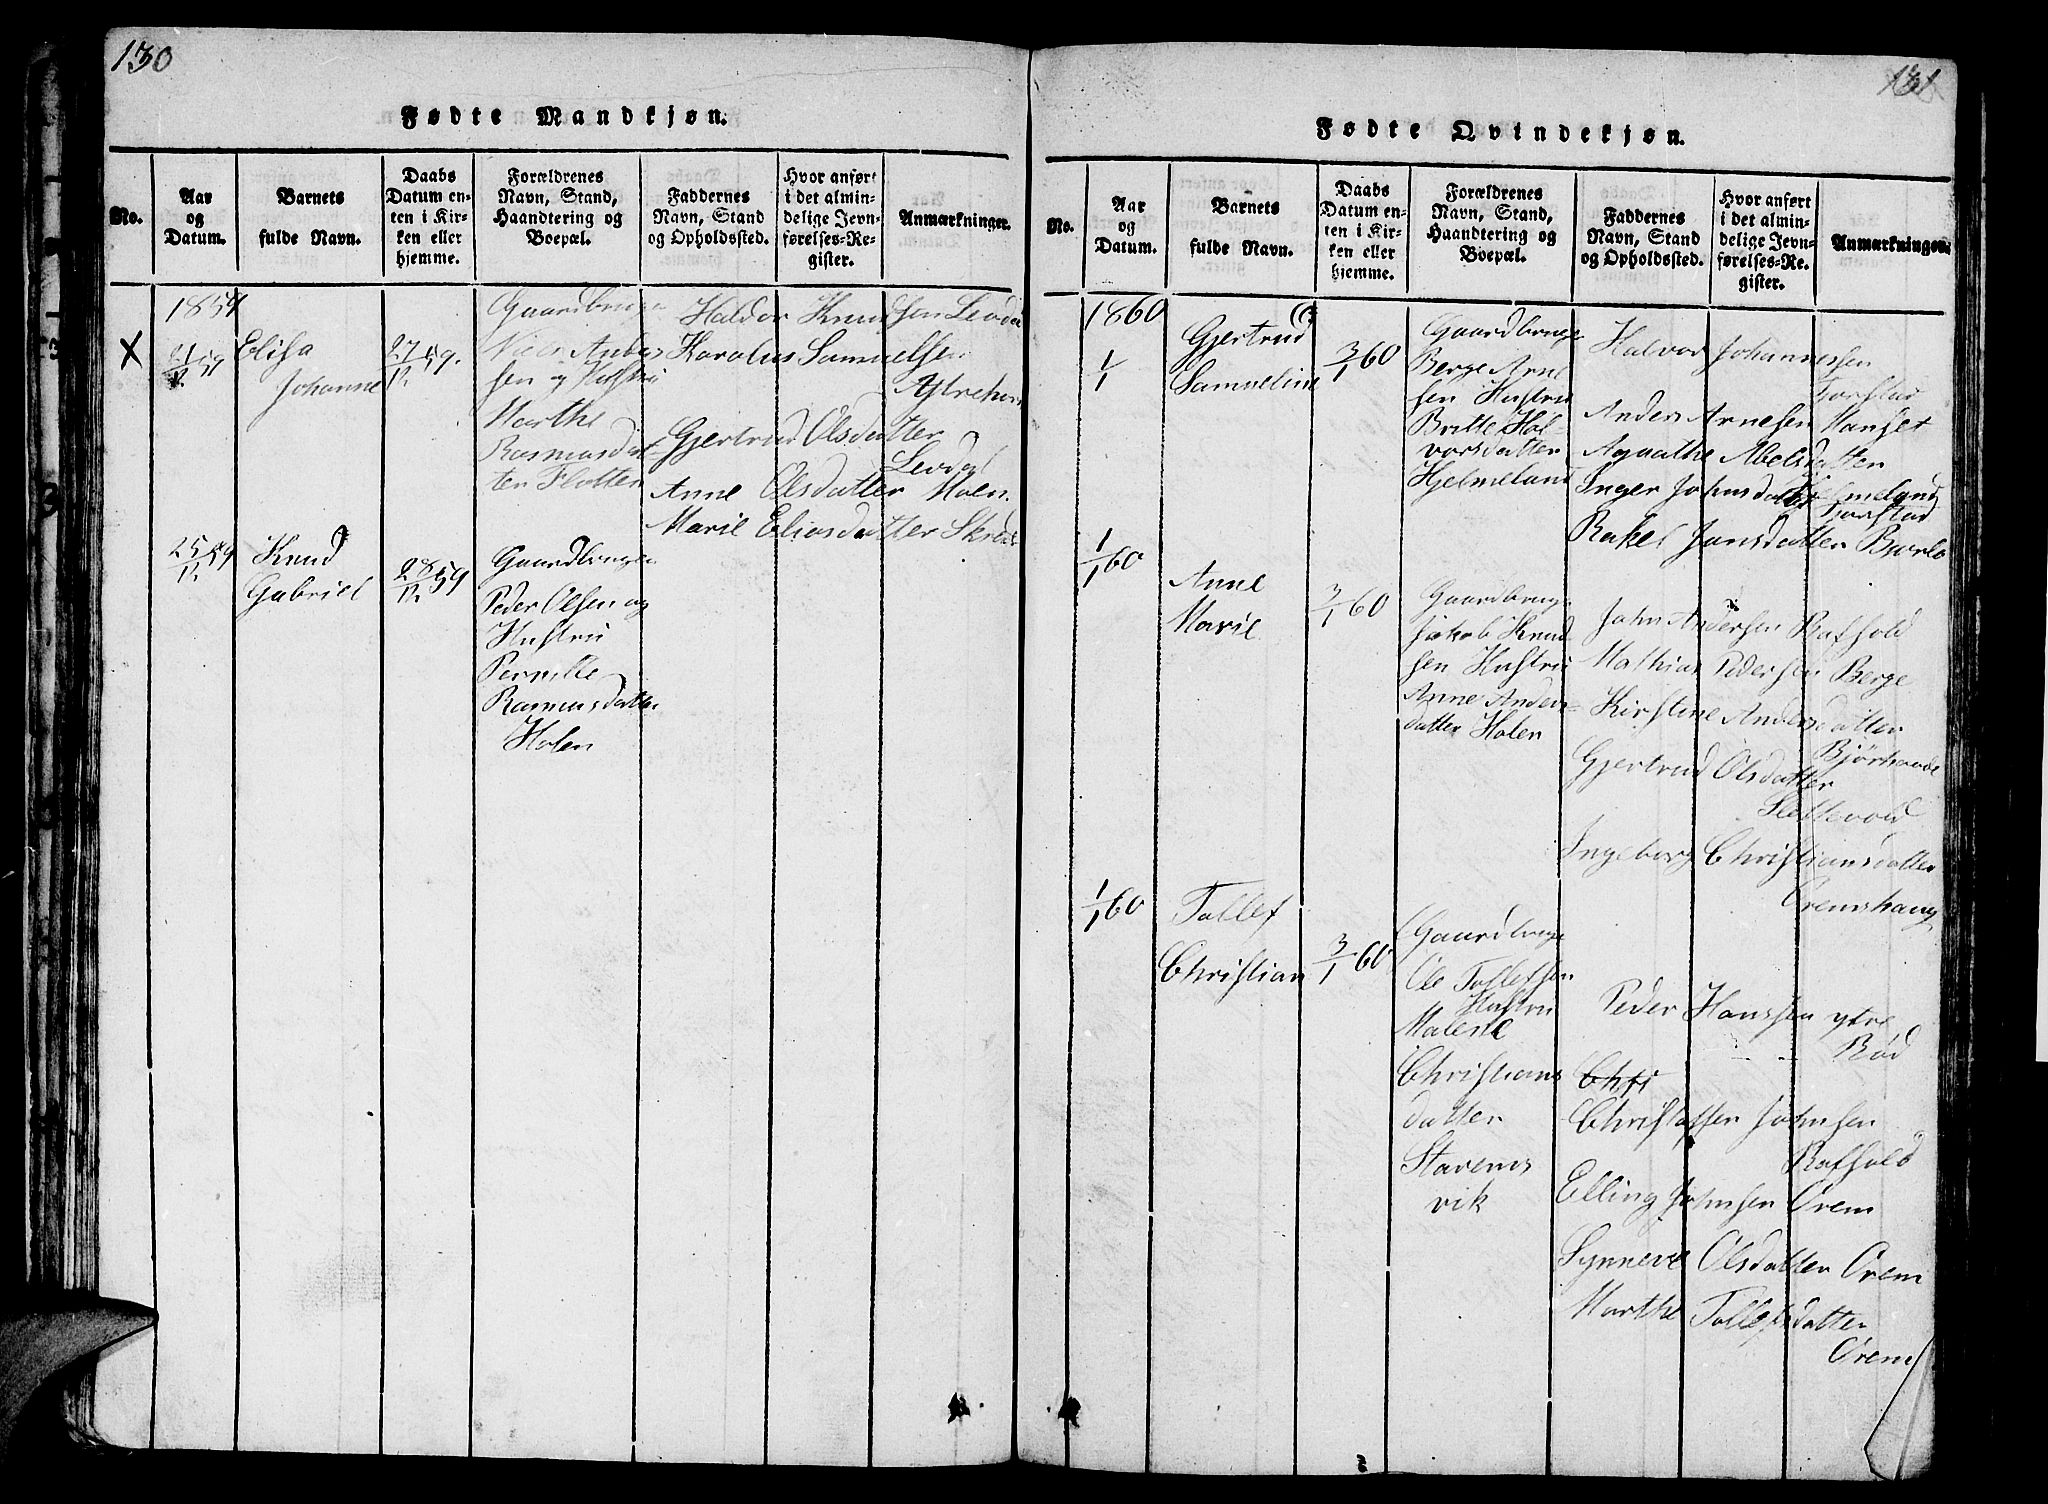 130
Fødte Mandkjøn.
No.
Aar
og
Datum.
Barnets
fulde Navn.
Daabs
Datum en-
ten i Kir-
ken eller
hjemme.
Forældrenes
Navn, Stand,
Haandtering og
Boepæl.
Faddernes
Navn, Stand
og Opholdssted.
Hvor anført
i det almin-
delige Jevn-
førelses-Re-
gister.
Anmærkninger.
1859
X
21/12 59
Elisa
Johanne
27/12 59.
Gaardbruger
Niels Anders
sen og Hustru
Marthe
Rasmusdat
ter Flotten
Haldor Knudsen Levdal
Karolus Samuelsen
Gjertrud Olsdatter
Levdal
Anne Olsdatter Holen
Marie Eliasdatter
25/12 59
Knud
Gabriel
28/12 59
Gaardbruger
Peder Olsen og
Hustru
Pernille
Rasmusdatter
Holen
131
Fødte Qvindekjøn.
No.
Aar
og
Datum.
Barnets
fulde Navn.
Daabs
Datum en-
ten i Kir-
ken eller
hjemme.
Forældrenes
Navn, Stand,
Haandtering og
Boepæl.
Faddernes
Navn, Stand
og Opholdssted.
Hvor anført
i det almin-
delige Jevn-
førelses-Re-
gister.
Anmærkninger.
1860
1/1
Gjertrud
Samueline
3/1 60
Gaardbruge
Berge Arne
sen Hustru
Britte Hal-
vorsdatter
Hjelmeland
Halvor Johannessen
Farstad
Anders Arnesen Hanset
Agaathe Abelsdatter
Hjelmeland
Inger Johnsdatter Farstad
Rakel Jonsdatter
1/1 60
Anne
Marie
3/1 60
Gaardbruge
Jakob Knud
sen Hustru
Anne Anders
datter Holen
John Andersen Rafsold
Mathias Pedersen Berge
Kirstine Andersdatter
Gjertrud Olsdatter
Slettevold
Ingeborg Christiansdatter
Oremshaug
1/1 60
Tollef
Christian
3/1 60
Gaardbruge
Ole Tollefsen
Hustru
Malene
Christians
datter
Stavems
vik
Peder Hanssen ytre
Rød
Chri
Christoffer Johnsen
Rafsold
Elling Johnsen Orem
Synneve Olsdatter Orem
Marthe Tollefsdatter
Orem